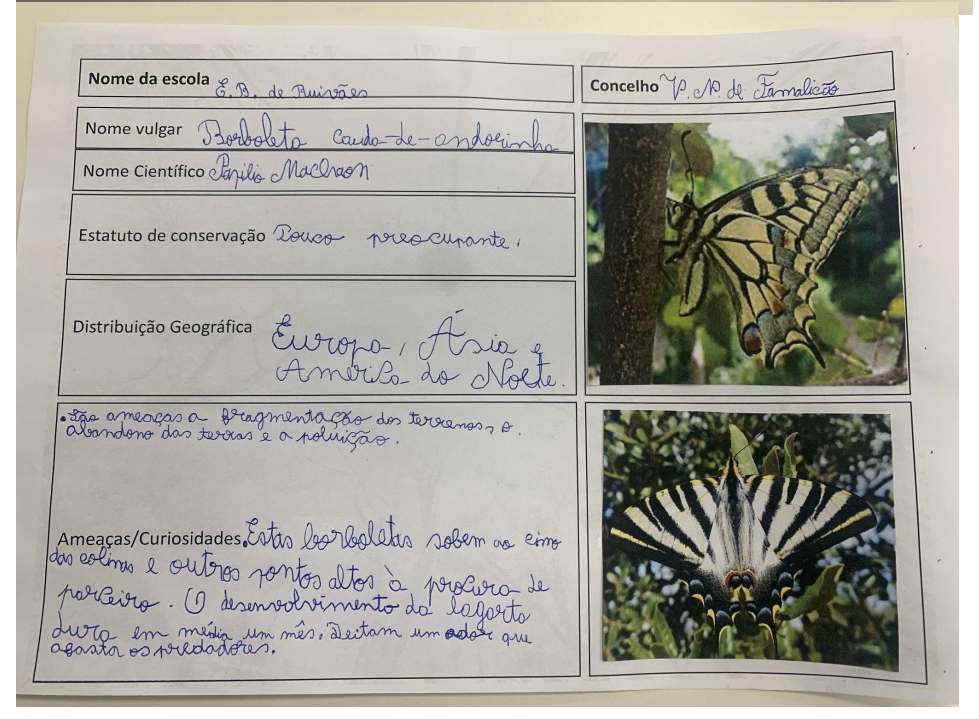 Nome da escola E.B. de Ruivães
Concelho V. N. de Famalicão
Nome vulgar Borboleta cauda-de-andorinha
Nome Científico Papilio Machaon
Estatuto de conservação Pouco preocupante.
Distribuição Geográfica Europa, Ásia e
América do Norte.
• São ameaças a fragmentação dos terrenos, o
abandono das terras e a poluição.
Ameaças/Curiosidades. Estas borboletas sobem ao cimo
das colinas e outros pontos altos à procura de
parceiro. O desenvolvimento da lagarta
dura em média um mês. Deitam um odor que
afasta os predadores.